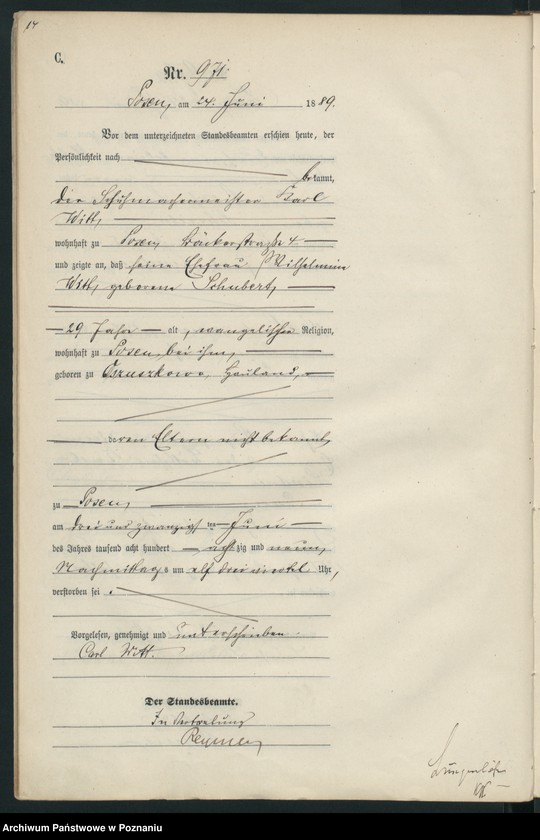 17
C.
Nr. 971.
Posen, am 24. Juni 1889.
Vor dem unterzeichneten Standesbeamten erschien heute, der
Persönlichkeit nach
bekannt,
der Schuhmachermeister Karl
Witt,
wohnhaft zu Posen, Bäckerstraße 4
und zeigte an, daß seine Ehefrau Wilhelmine
Witt, geborene Schubert,
29 Jahre alt, evangelischer Religion,
wohnhaft zu Posen, bei ihm,
geboren zu Hauland,
deren Eltern nicht bekannt,
zu Posen,
am drei und zwanzigsten Juni
des Jahres tausend acht hundert achtzig und neun,
Nachmittags um elf dreiviertel Uhr,
verstorben sei.
Vorgelesen, genehmigt und unterschrieben.
Carl Witt.
Der Standesbeamte.
In Vertretung
Archiwum Państwowe w Poznaniu